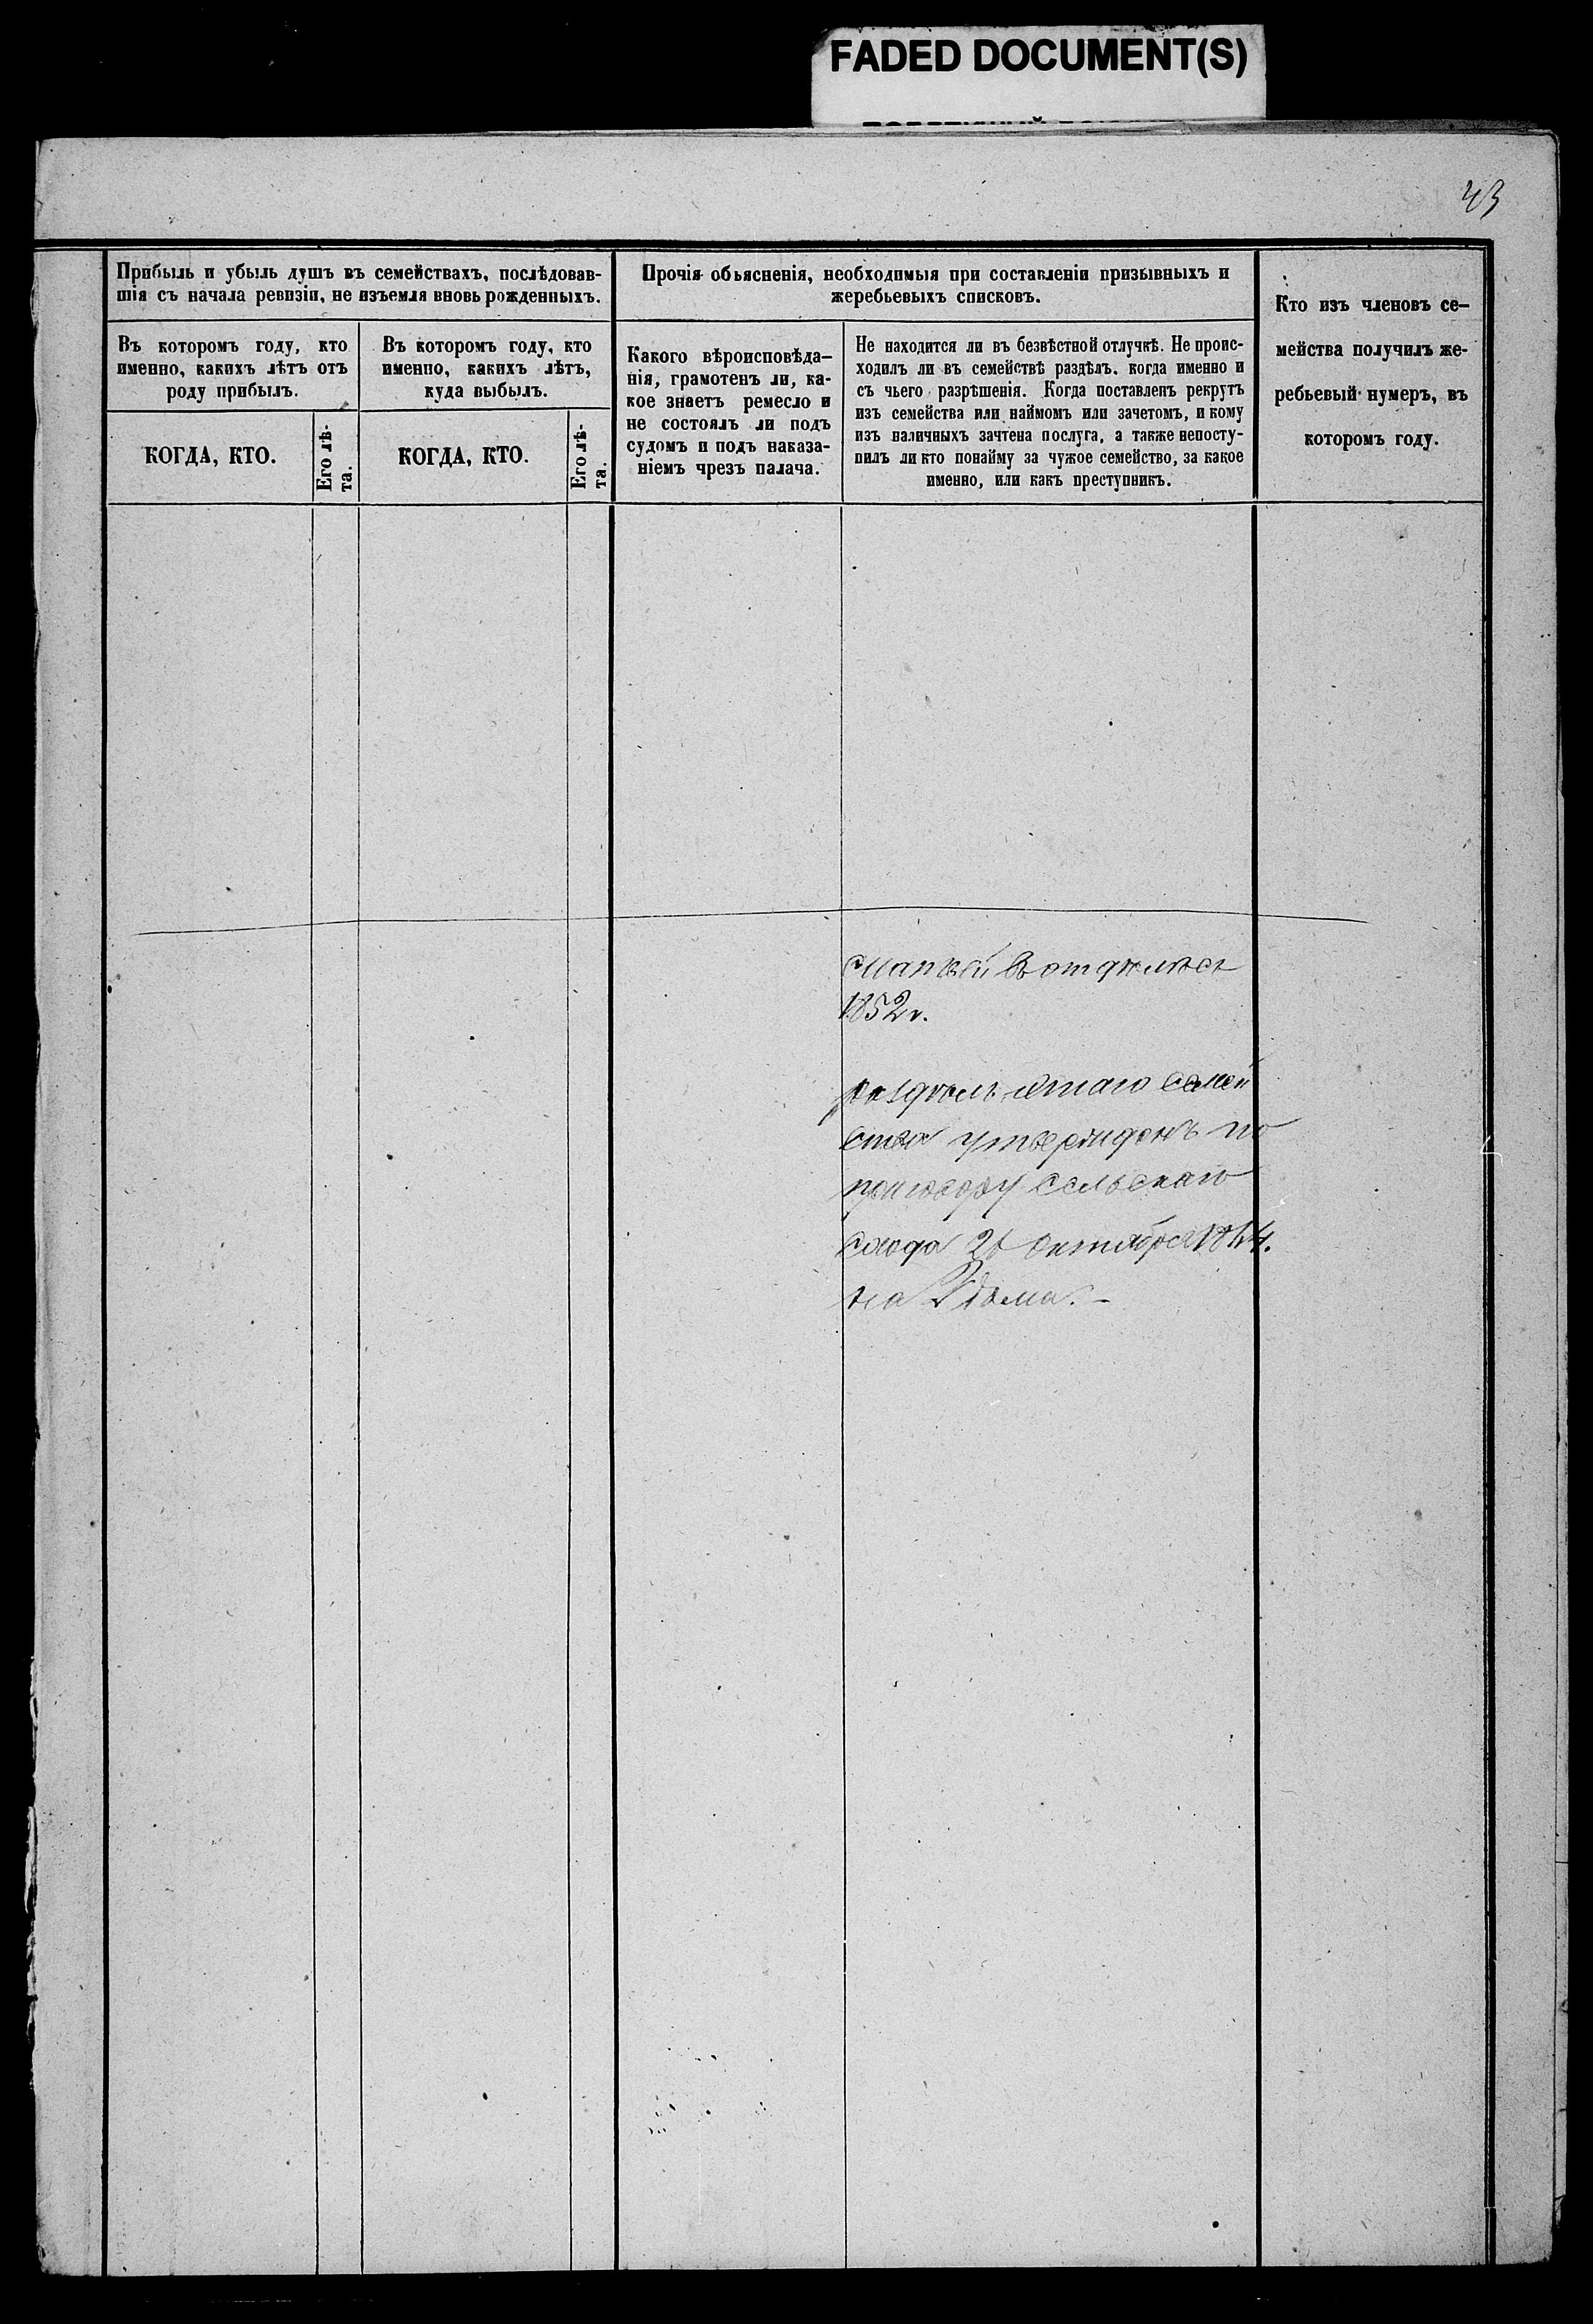 FADED DOCUMENT(S)
43
Прибыль и убыль душъ въ семействахъ, послѣдовав-
шія съ начала ревизіи, не изъемля вновь рожденныхъ.
Прочія обьясненія, необходимыя при составленіи призывныхъ и
жеребьевыхъ списковъ.
Кто изъ членовъ се-
мейства получилъ же-
ребьевый нумеръ, въ
которомъ году.
Въ которомъ году, кто
именно, какихъ лѣтъ отъ
роду прибылъ.
Въ которомъ году, кто
именно, какихъ лѣтъ,
куда выбылъ.
Какого вѣроисповѣда-
нія, грамотенъ ли, ка-
кое знаетъ ремесло и
не состоялъ ли подъ
судомъ и подъ наказа-
ніемъ чрезъ палача.
Не находится ли въ безвѣстной отлучкѣ. Не проис-
ходилъ ли въ семействѣ раздѣлъ. когда именно и
съ чьего разрѣшенія. Когда поставленъ рекрутъ
изъ семейства или наймомъ или зачетомъ, и кому
изъ наличныхъ зачтена послуга, а также непосту-
пилъ ли кто понайму за чужое семейство, за какое
именно, или какъ преступникъ.
КОГДА, КТО.
Его лѣ-
та.
КОГДА, КТО.
Его лѣ-
та.
1852 г.
раздѣлъ этаго семей
ства утвержденъ по
приговору сельскаго
схода октября
на 2 дома.–